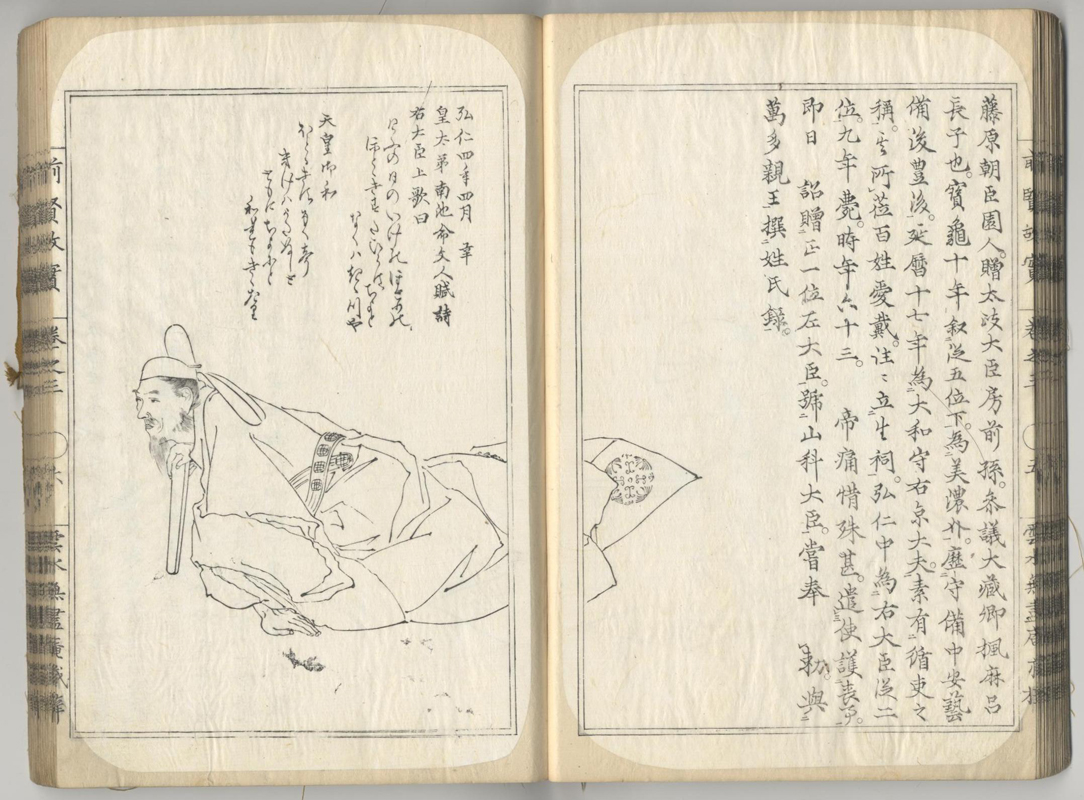 藤原朝臣園人。贈太政大臣房前孫。参議大蔵卿楓麻呂
長子也。寳龜十年。叙従五位下。為美濃介。歴守備中安藝
備後豊後。延暦十七年為大和守右京大夫。素有循吏之
稱。所莅百姓愛戴。往〻立生祠。弘仁中為右大臣従二
位。九年薨。時年六十三。帝痛惜殊甚。遣使護喪事。
即日 詔贈正一位左大臣。號山科大臣。嘗奉 勅與
萬多親王撰姓氏録。
弘仁四年四月 幸
皇太弟南池命文人賦詩
右大臣上歌曰
けふの日のいけのほとりに
ほとゝきすたひらは ちよと
なくは きゝつや
天皇御和
ほとゝきすなくこゑ
きけはうたぬしと
ともにちよにと
われもきゝたり
前賢故實 巻之三 六 雲水無盡庵蔵
前賢故實 巻之三 五 雲水無盡庵蔵